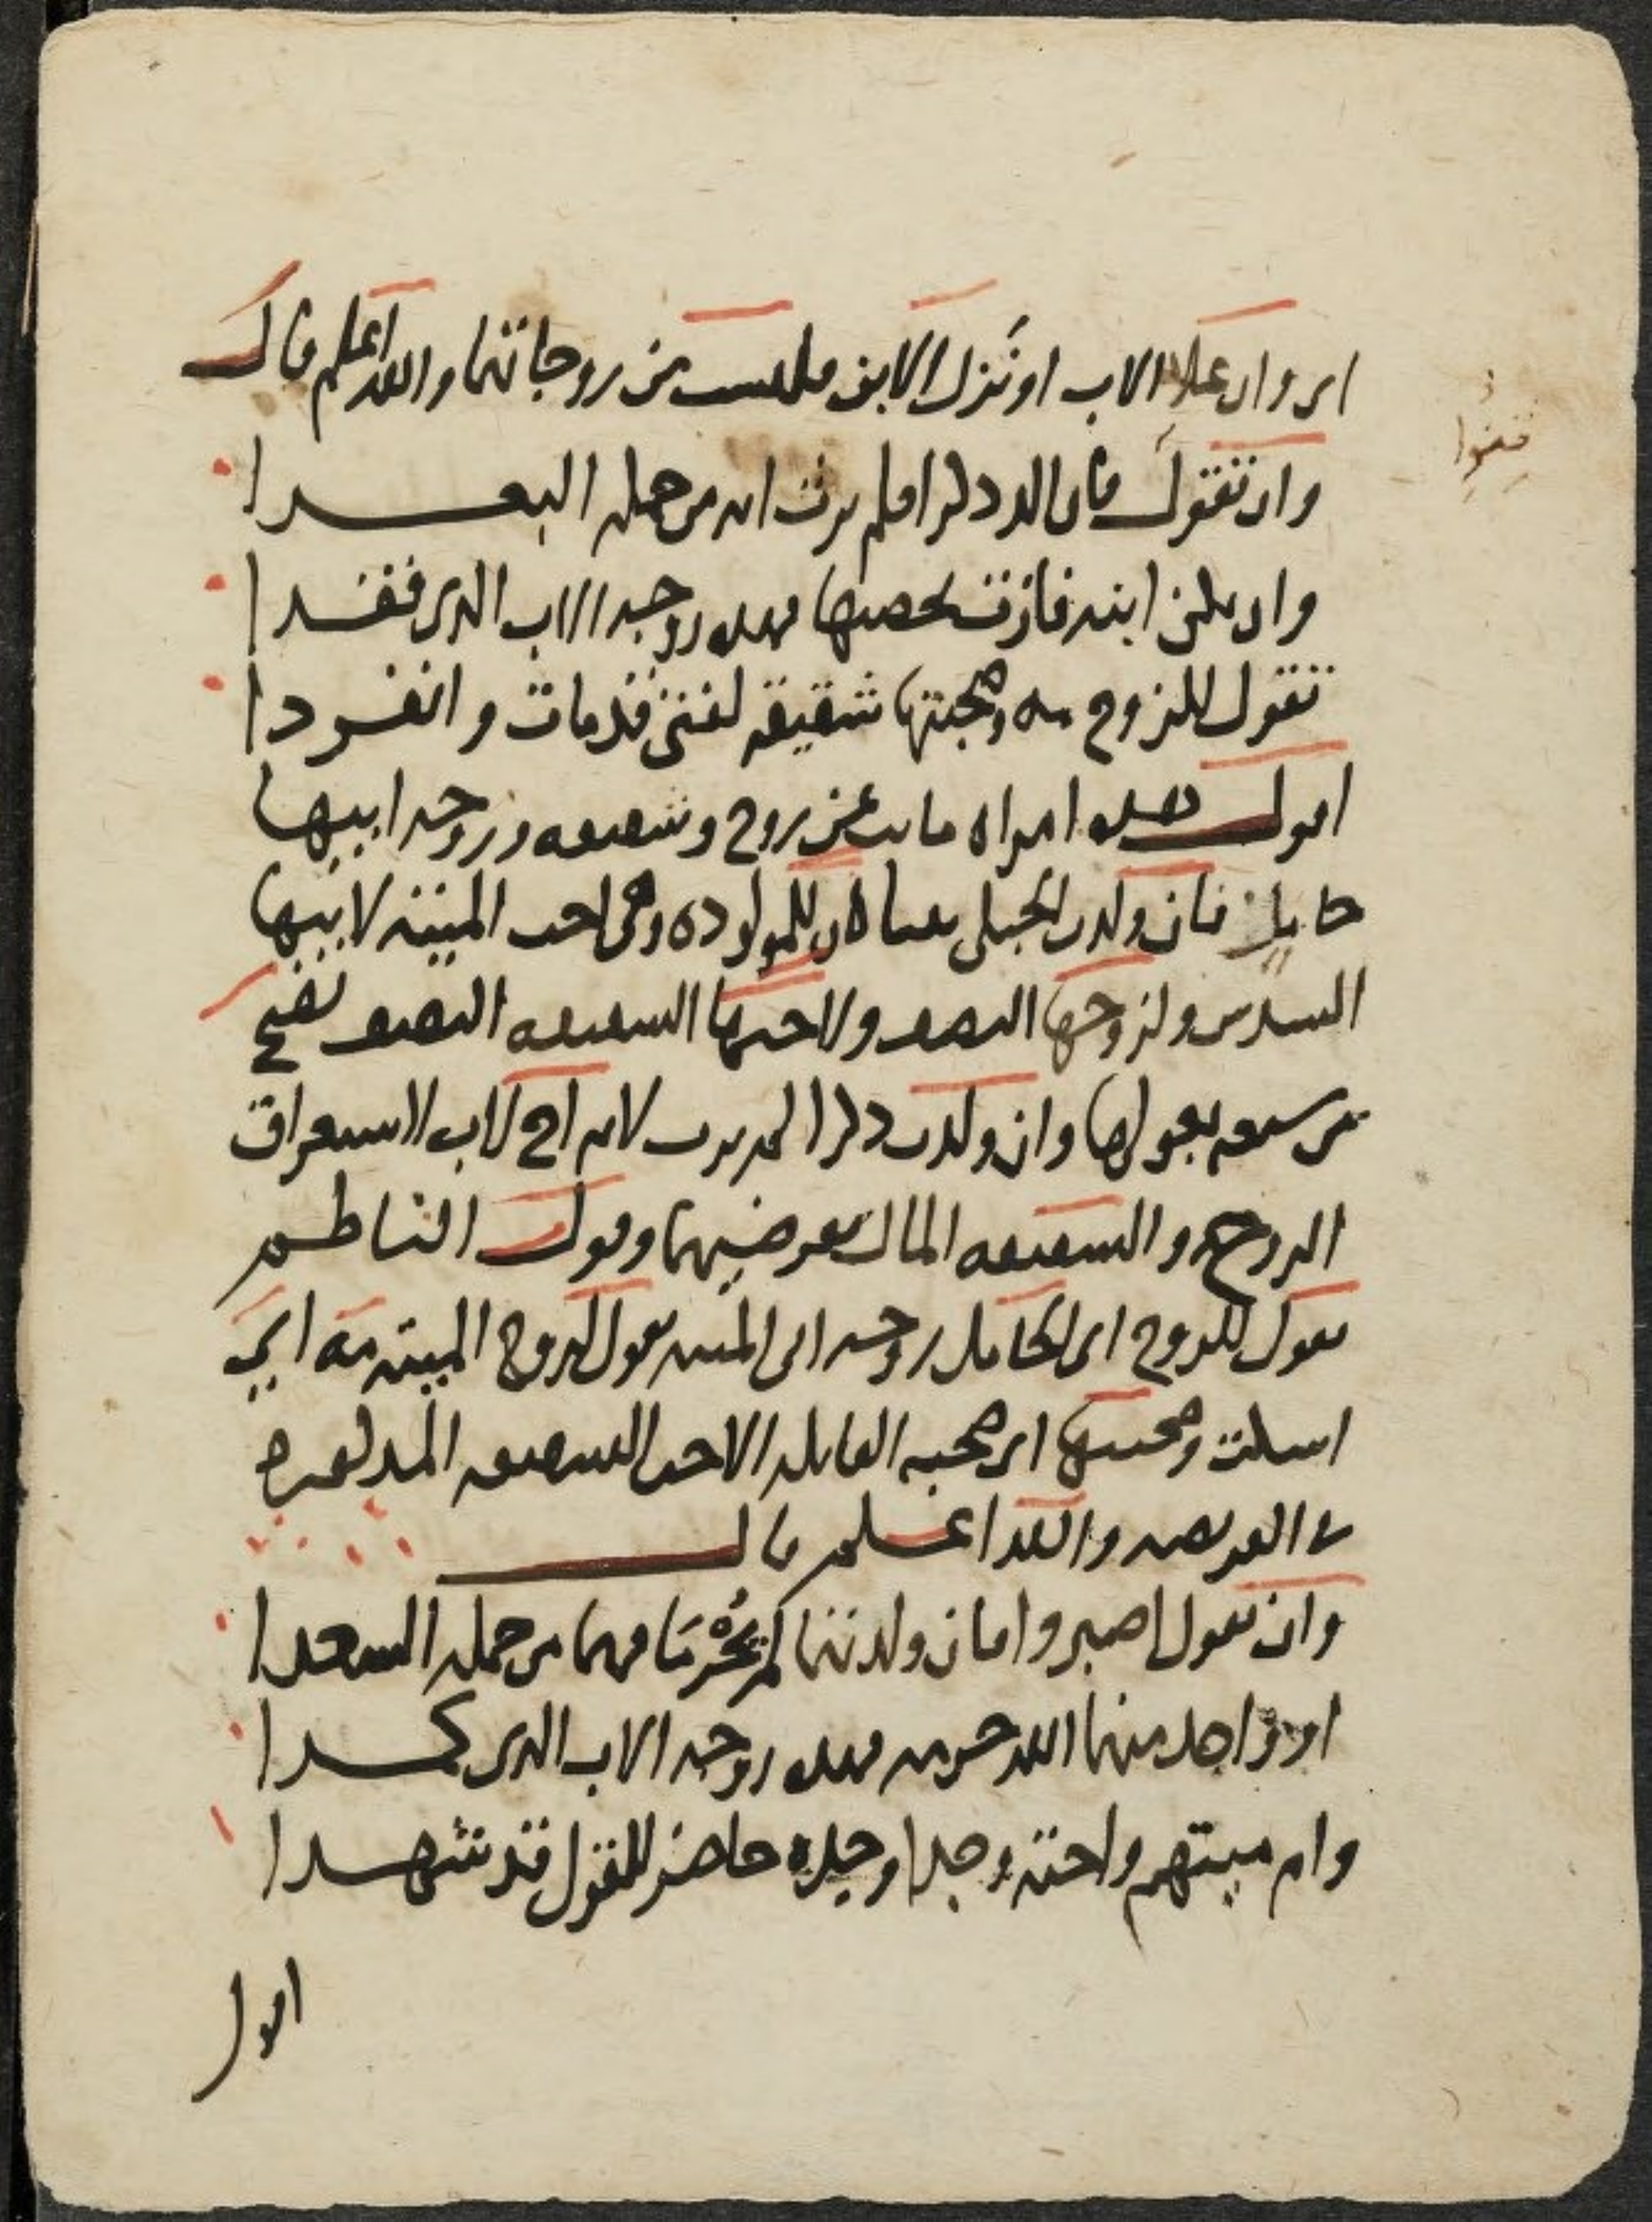 ابن وان علا الاب او نزل الابن فليست من زوجاتهما والله اعلم قال
قفوا
وان تقول فان الد ذكرا فلم يرث انه من جملة البعدا
وان يكن ابنة فازت بحصتها فهذه زوجة الاب الذي فقدا
تقول للزوج مه وصحبتها شقيقة لفتى قد مات وانفردا
اقول هذه امراة ماتت عن زوج وشقيقه وزوجة ابيها
حايل فان ولدت الحبلى بنتا كان للمولوده وهي اخت الميتة لابيها
السدس ولزوجها النصف ولاختها الشقيقه النصف تصح
من سبعه بعولها وان ولدت ذكرا لم يرث لانه اخ لاب لاستغراق
الزوج والشقيقه المال بفرضيهما وقول الناظم
تقول للزوج اي الحامل زوجة ابي الميته تقول لزوج الميتة مه اي
اسكت وصحبتها اي صحبة القايله الاخت الشقيقه المذكوره
في الفريضه والله اعلم قال
وان تقول اصبروا فان ولدتهما لم يحرما فهما من جملة السعدا
او واحد منهما الله حرمه فهذه زوجة الاب الذي كمدا
وام ميتهم واخته وجدا وجده حاضر للقول قد شهدا
اقول